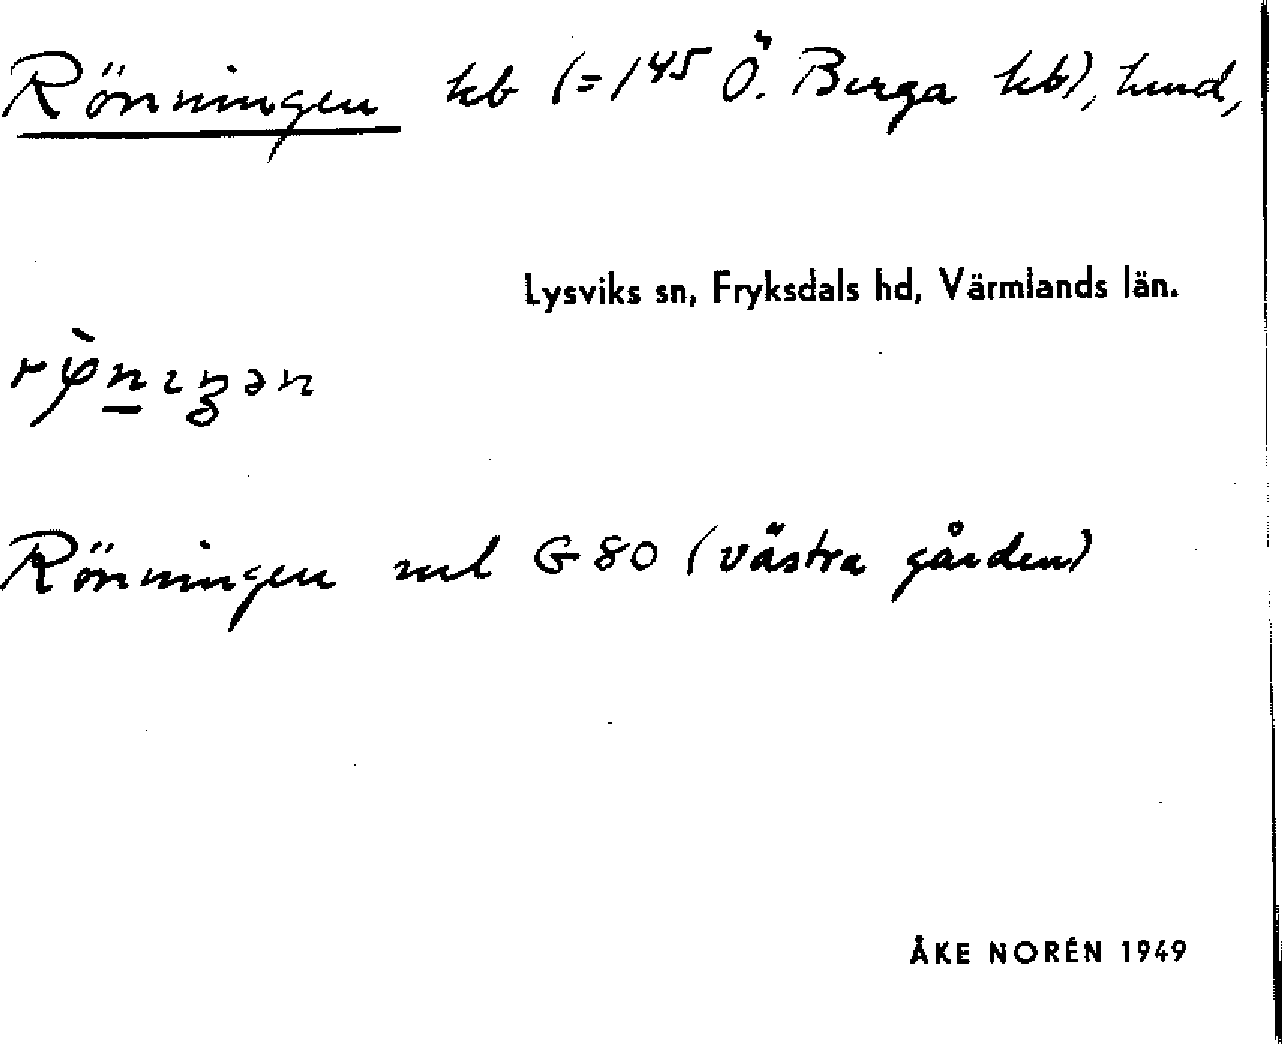 Rönningen hb (=1⁴⁵ Ö. Berga hb), hmd,
Lysviks sn, Fryksdals hd, Värmlands län.
Rönningen ml G 80 (västra gården)
ÅKE NORÉN 1949